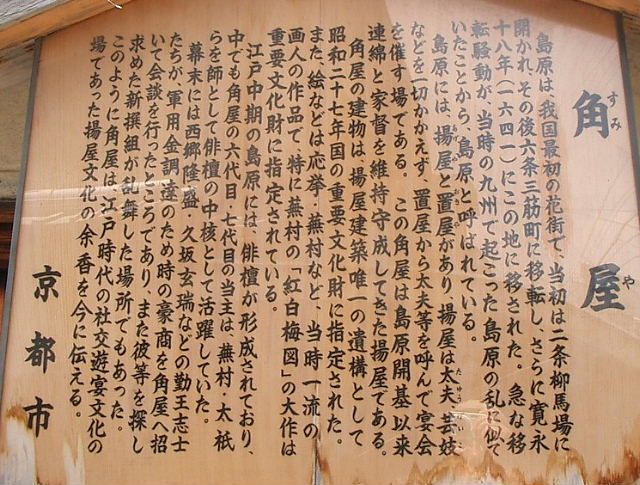 角屋
すみ や
島原は、我国最初の花街で、当初は二条柳馬場に
開かれ、その後六条三筋町に移転し、さらに寛永
十八年(一六四一)にこの地に移された。急な移
転騒動が、当時の九州で起こった島原の乱に似て
いたことから、島原と呼ばれている。
島原には、揚屋と置屋があり、揚屋は太夫・芸妓
などを一切かかえず、置屋から太夫等を呼んで宴会
を催す場である。この角屋は島原開基以来
連綿と家督を維持守成してきた揚屋である。
角屋の建物は、揚屋建築唯一の遺構として
昭和二十七年国の重要文化財に指定された。
また、絵などは応挙、蕪村など、当時一流の
画人の作品で、特に蕪村の「紅白梅図」の大作は
重要文化財に指定されている。
江戸中期の島原には、俳壇が形成されており、
中でも角屋の六代目・七代目の当主は、蕪村・太祇
らを師として俳壇の中核として活躍していた。
幕末には西郷隆盛・久坂玄瑞などの勤王志士
たちが、軍用金調達のため時の豪商を角屋へ招
いて会談を行ったところであり、また彼等を探し
求めた新撰組が乱舞した場所でもあった。
このように角屋は、江戸時代の社交遊宴文化の
場であった揚屋文化の余香を今に伝える。
京都市